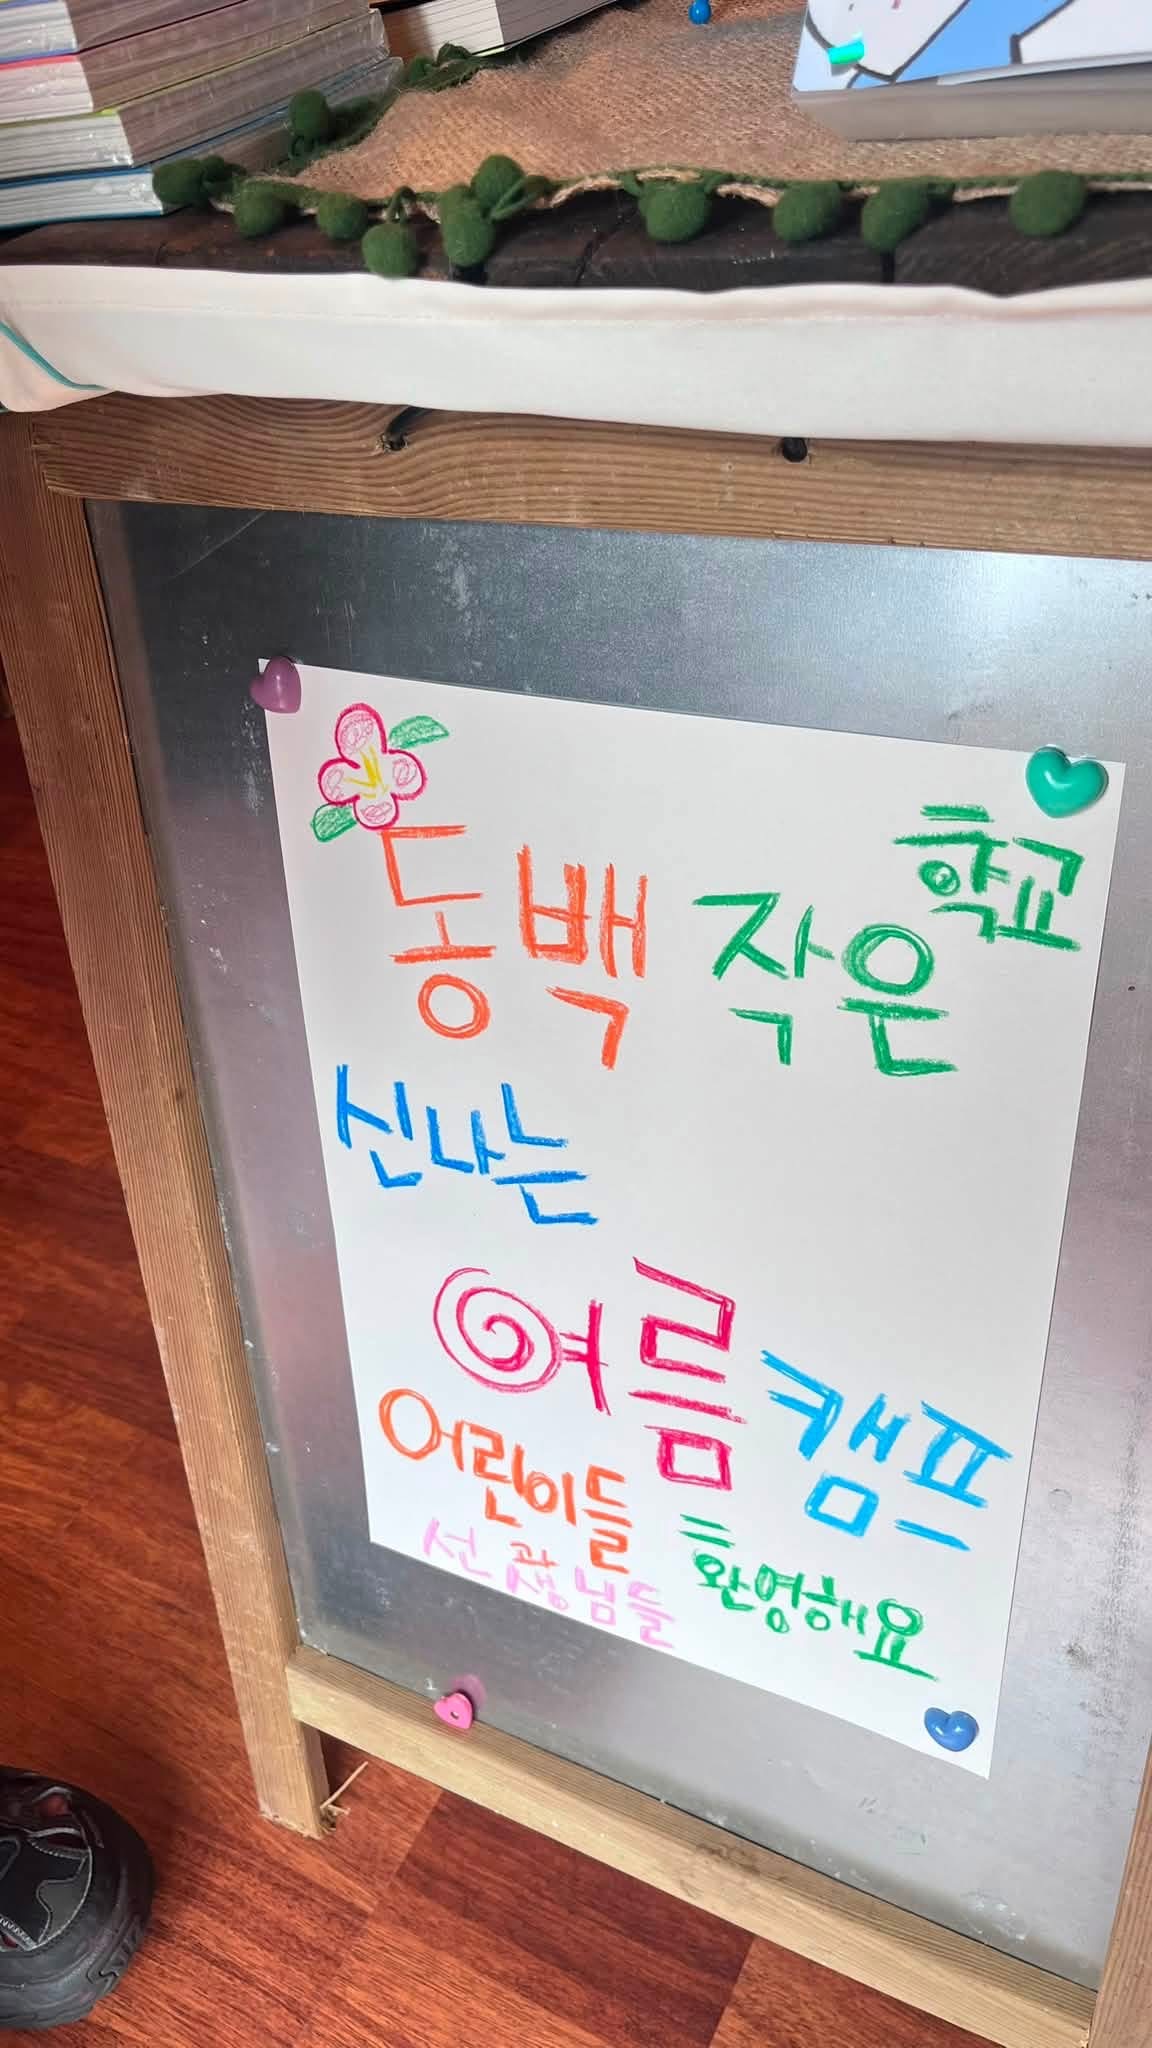 동백 작은 학교
신나는
여름 캠프
어린이들과
선생님들 환영해요